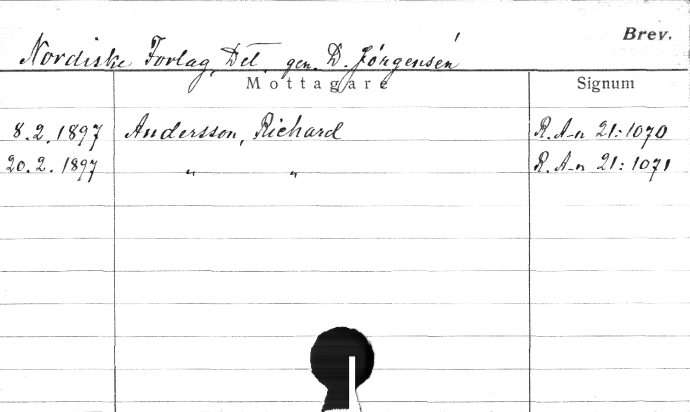 Brev.
Nordiske Forlag, Det gen. D. Jørgensen
Mottagare Signum
8.2.1897 Andersson, Richard R. A-n 21:1070
20.2.1897 " " R. A-n 21:1071